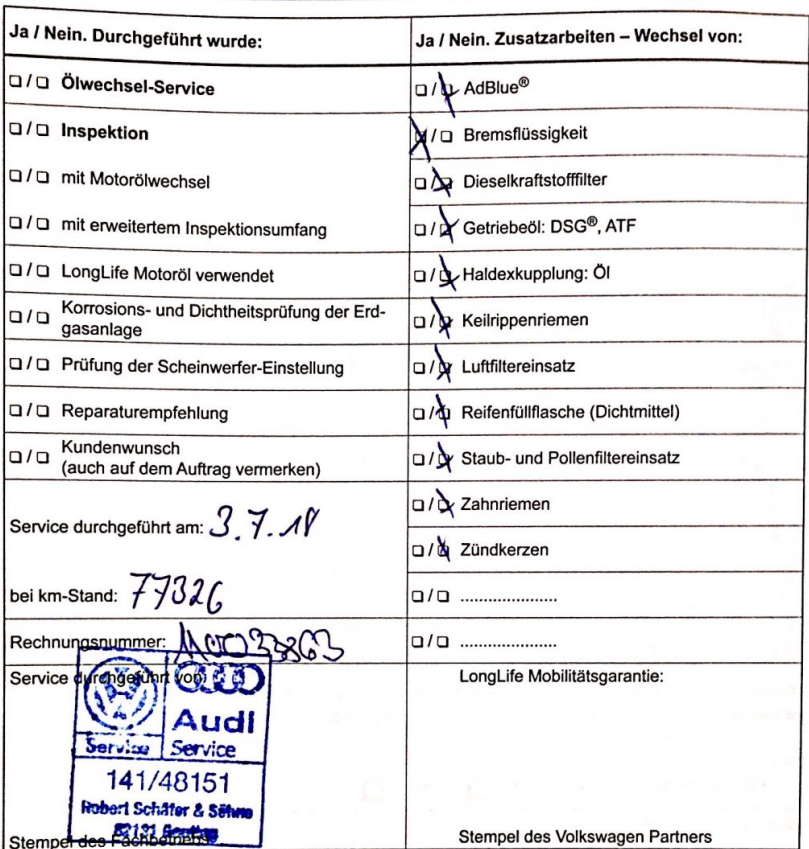 Ja / Nein. Durchgeführt wurde:
❏ / ❏ Ölwechsel-Service
❏ / ❏ Inspektion
❏ / ❏ mit Motorölwechsel
❏ / ❏ mit erweitertem Inspektionsumfang
❏ / ❏ LongLife Motoröl verwendet
❏ / ❏ Korrosions- und Dichtheitsprüfung der Erd-
gasanlage
❏ / ❏ Prüfung der Scheinwerfer-Einstellung
❏ / ❏ Reparaturempfehlung
❏ / ❏ Kundenwunsch
(auch auf dem Auftrag vermerken)
Service durchgeführt am: 3.7.18
bei km-Stand: 77326
Rechnungsnummer:
Service durchgeführt von:
Audi
Service Service
141/48151
Robert Schäfer & Söhne
82131
Stempel des Fachbetriebs
Ja / Nein. Zusatzarbeiten – Wechsel von:
❏ / ❏ AdBlue®
❏ / ❏ Bremsflüssigkeit
❏ / ❏ Dieselkraftstofffilter
❏ / ❏ Getriebeöl: DSG®, ATF
❏ / ❏ Haldexkupplung: Öl
❏ / ❏ Keilrippenriemen
❏ / ❏ Luftfiltereinsatz
❏ / ❏ Reifenfüllflasche (Dichtmittel)
❏ / ❏ Staub- und Pollenfiltereinsatz
❏ / ❏ Zahnriemen
❏ / ❏ Zündkerzen
❏ / ❏ ......................
❏ / ❏ ......................
LongLife Mobilitätsgarantie:
Stempel des Volkswagen Partners